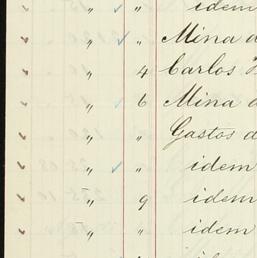 ✓ " ✓ " idem
✓ " ✓ " Mina d
✓ " 4 Carlos
✓ " ✓ 6 Mina d
✓ " " Gastos d
✓ " ✓ " idem
✓ " 9 idem
✓ " " idem